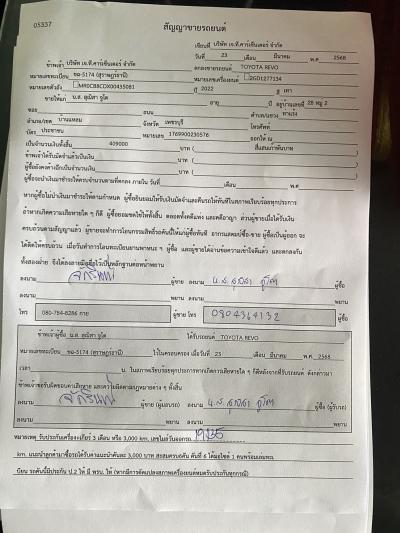 05337
สัญญาขายรถยนต์
เขียนที่ บริษัท เจ.ที.คาร์เซ็นเตอร์ จำกัด
วันที่ 23 เดือน มีนาคม พ.ศ 2568
ข้าพเจ้า บริษัท เจ.ที.คาร์เซ็นเตอร์ จำกัด ตกลงขายรถยนต์ TOYOTA REVO
หมายเลขทะเบียน ขอ-5174 (สุราษฎร์ธานี) หมายเลขเครื่องยนต์ 2GD1277134
หมายเลขตัวถัง MR0CB8CDX00435081 ปี 2022 สี เทา
ขายให้แก่ น.ส. สุณิสา ภู่โต อายุ ปี อยู่บ้านเลขที่ 28 หมู่ 2
ซอย ถนน ตำบล/แขวง
อำเภอ/เขต บ้านแหลม จังหวัด เพชรบุรี โทรศัพท์
บัตร ประชาชน หมายเลข 1769900230576 ออกให้ ณ
เป็นจำนวนเงินทั้งสิ้น 409000 บาท ( สี่แสนเก้าพันบาท
ข้าพเจ้าได้รับมัดจำแล้วเป็นเงิน บาท ( )
ผู้ซื้อยังคงค้างอีกเป็นจำนวนเงิน บาท ( )
ผู้ซื้อจะนำเงินมาชำระให้ครบจำนวนตามที่ตกลง ภายใน วันที่ เดือน พ.ศ
หากผู้ซื้อไม่นำเงินมาชำระให้ตามกำหนด ผู้ซื้อยินยอมให้ริบเงินมัดจำและคืนรถให้ทันทีในสภาพเรียบร้อยทุกประการ
ถ้าหากเกิดความเสียหายใด ๆ ก็ดี ผู้ซื้อยอมชดใช้ให้ทั้งสิ้น ตลอดทั้งคดีแพ่ง และคดีอาญา ส่วนผู้ขายเมื่อได้รับเงิน
ครบถ้วนตามสัญญาแล้ว ผู้ขายจะทำการโอนกรรมสิทธิ์รถคันนี้ให้แก่ผู้ซื้อทันที
ได้ติดให้ครบถ้วน เมื่อวันทำการโอนทะเบียนยานพาหนะ ฯ ผู้ซื้อ และผู้ขายได้อ่านข้อความเข้าใจดีแล้ว และตกลงกัน
ทั้งสองฝ่าย จึงได้ลงลายมือชื่อไว้เป็นหลักฐานต่อหน้าพยาน
ลงนาม ผู้ขาย ลงนาม น.ส. สุณิสา ภู่โต ผู้ซื้อ
ลงนาม พยาน ลงนาม พยาน
โทร 080-784-8286 กาย ผู้ขาย โทร 0804364132 ผู้ซื้อ
ข้าพเจ้าผู้ซื้อ น.ส. สุณิสา ภู่โต ได้รับรถยนต์ TOYOTA REVO
หมายเลขทะเบียน ขอ-5174 (สุราษฎร์ธานี) ไว้ในครอบครอง เมื่อวันที่ 23 เดือน มีนาคม พ.ศ 2568
เวลา น. ในสภาพเรียบร้อยทุกประการหากเกิดความเสียหายใด ๆ ก็ดีหลังจากที่รับรถยนต์ ดังกล่าวมา
ข้าพเจ้าขอรับผิดชอบค่าเสียหาย และความผิดตามกฎหมายต่าง ๆ ทั้งสิ้น
ลงนาม ผู้ขาย (ผู้มอบรถ) ลงนาม น.ส. สุณิสา ภู่โต ผู้ซื้อ (ผู้รับรถ)
ลงนาม พยาน ลงนาม พยาน
หมายเหตุ รับประกันเครื่อง+เกียร์ 3 เดือน หรือ 3,000 km. เลขไมล์วันออกรถ
km. แนะนำลูกค้ามาซื้อรถได้รับค่าแนะนำคันละ 3,000 บาท สะสมครบ 6 คัน คันที่ 6 ได้มอไซค์ 1 คันพร้อมเล่มทะเ
บียน รถคันนี้มีประกัน ป.2 ให้ มี พรบ. ให้ (หากมีการดัดแปลงสภาพเครื่องยนต์หมดรับประกันทุกกรณี)